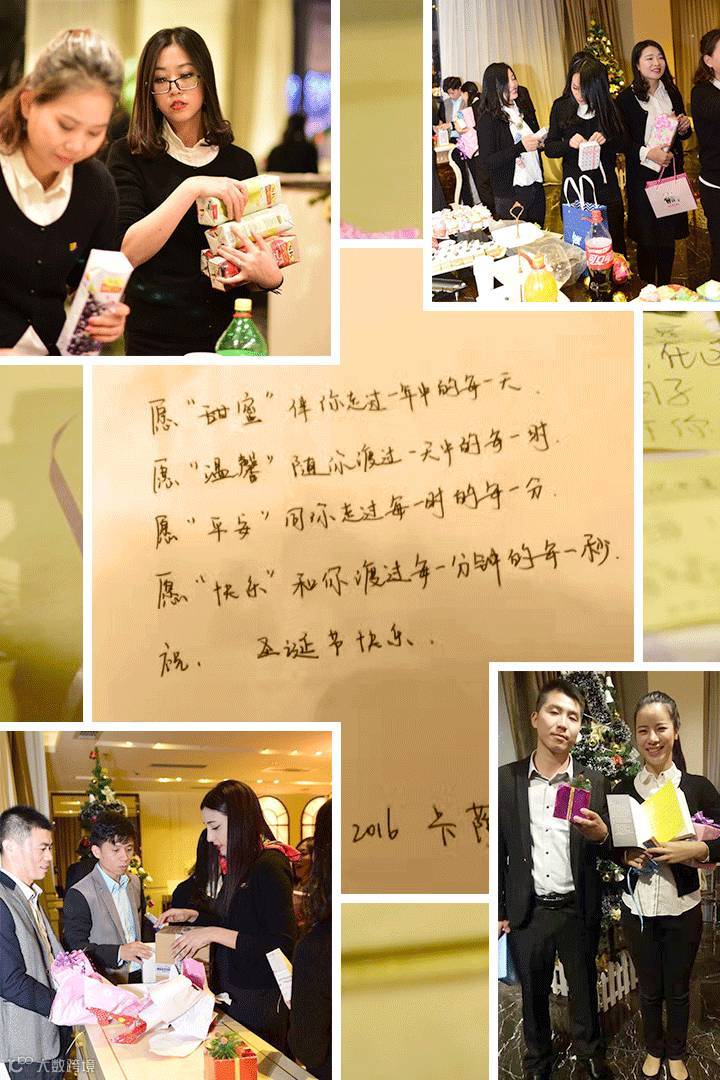 愿“甜蜜”伴你走过一年中的每一天.
愿“温馨”随你渡过一天中的每一时.
愿“平安”同你走过每一时的每一分.
愿“快乐”和你渡过每一分钟的每一秒.
祝. 圣诞节快乐.
2016 卡萨
大数跨境